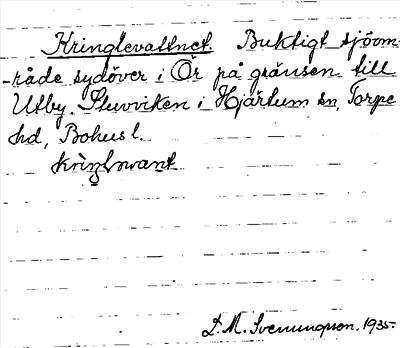 Kringlevattnet. Buktigt sjöom-
råde sydöver i Ör på gränsen till
Utby. Sluvviken i Hjärtum sn, Torpe
hd, Bohusl.
D. M. Svenungsson. 1935.